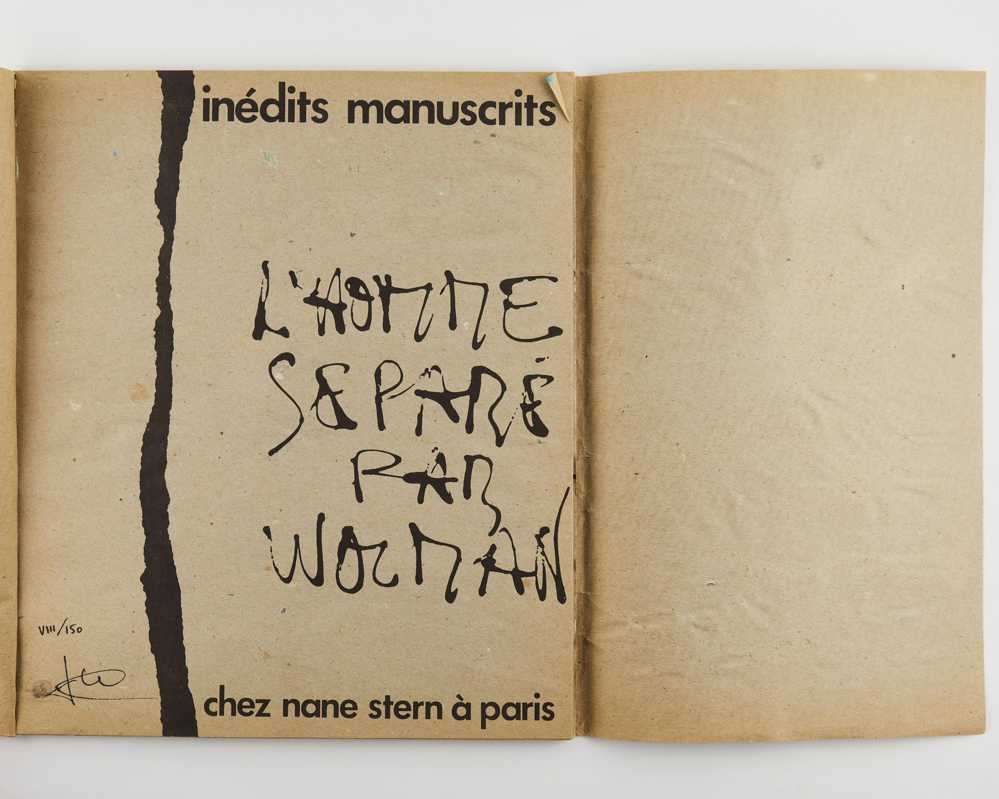 inédits manuscrits
L'HOMME
SEPARÉ
PAR
WOLMAN
VIII/150
chez nane stern à paris